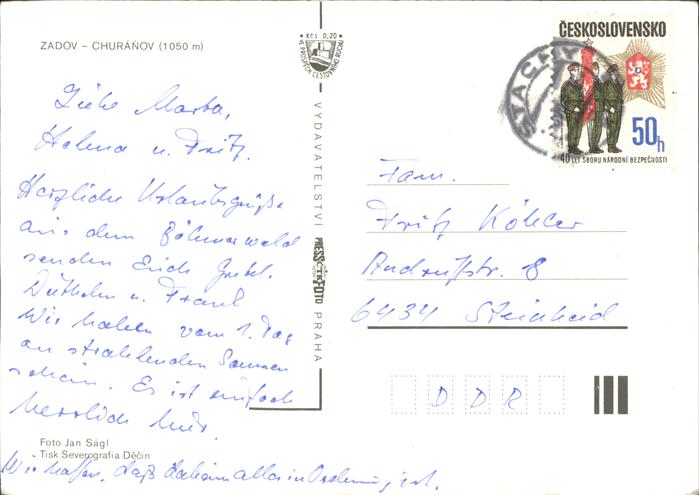 ZADOV – CHURÁŇOV (1050 m)
Kčs 0,20
VE PROSPĚCH CESTOVNÍHO RUCHU
ČESKOSLOVENSKO
50h
40 LET SBORU NÁRODNÍ BEZPEČNOSTI
STACHY
Liebe Marta,
Helena u. Fritz.
Herzliche Urlaubsgrüße
aus dem Böhmerwald
senden Euch Gretel,
u. Frank
Wir haben vom 1. Tag
an strahlenden Sonnen
schein. Es ist einfach
herrlich hier.
Wir hoffen, daß daheim alles in Ordnung ist.
Foto Jan Ságl
Tisk Severografia Děčín
VYDAVATELSTVÍ PRESSFOTO PRAHA
Fam.
Fritz Köhler
8
6434 Steinheid
DDR